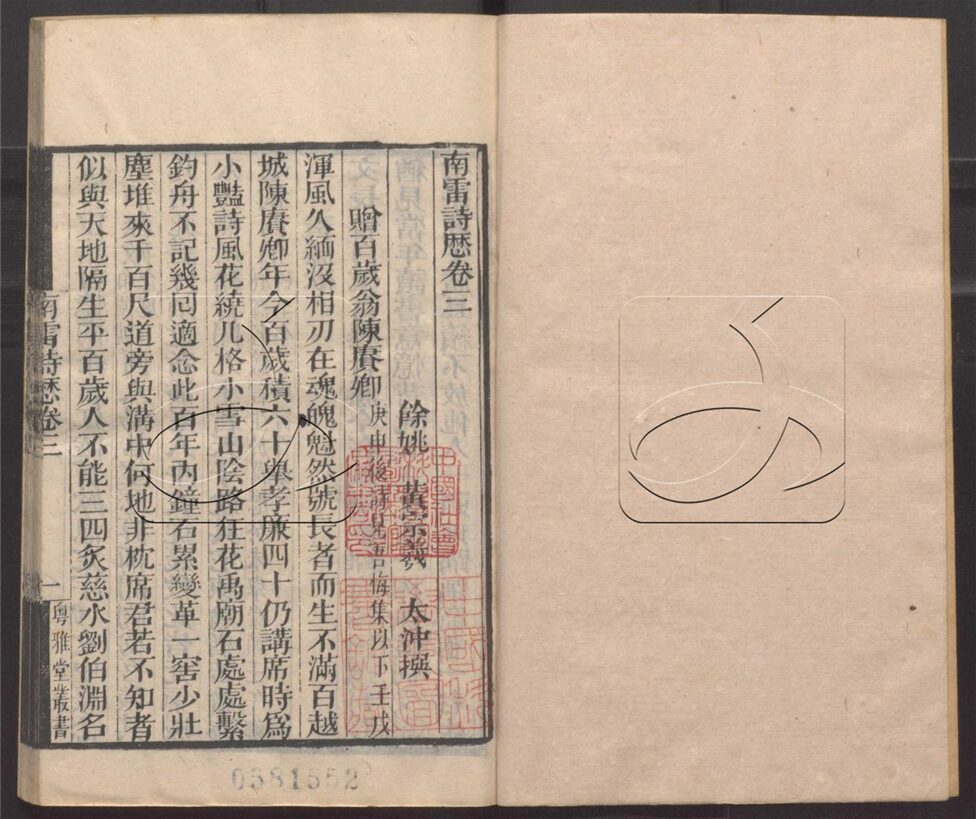 南雷詩歴卷三
餘姚　黃宗羲　太沖撰
贈百歲翁陳賡卿庚申後詩見吾悔集以下壬戌
渾風久緬沒相刃在魂魄魁然號長者而生不滿百越
城陳賡卿年今百歲積六十舉孝廉四十仍講席時爲
小豔詩風花繞几格小雪山陰路狂花禹廟石處處繫
釣舟不記幾囘適念此百年內鐘石累變革一窖少壯
塵堆來千百尺道旁與溝中何地非枕席君若不知者
似與天地隔生平百歲人不能三四炙慈水劉伯淵名
南雷詩歴卷三
一
粵雅堂叢書
0581552